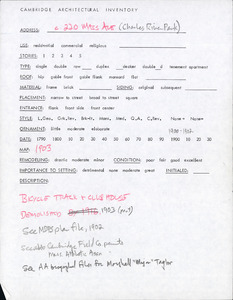 CAMBRIDGE ARCHITECTURAL INVENTORY
ADDRESS: c. 220 Mass Ave (Charles River Park)
USE: residential commercial religious
STORIES: 1 2 3 4 5
TYPE: single double row duplex decker double d tenement apartment
ROOF: hip gable front gable flank mansard flat
MATERIAL: frame brick SIDING: original subsequent
PLACEMENT: narrow to street broad to street square
ENTRANCE: flank front side front center
ORNAMENT: little moderate elaborate
DATE: 1790 1800 10 20 30 40 50 60 70 80 90 1900 10 20 30
MAP: 1903
REMODELING: drastic moderate minor CONDITION: poor fair good excellent
IMPORTANCE TO SETTING: detrimental none moderate great INITIALED:
DESCRIPTION:
BICYCLE TRACK + CLUB HOUSE
DEMOLISHED 1903
See file, 1902
See also Cambridge Field Co permits
Mass Athletic Assn
See AA biographical files for Marshall "Major" Taylor